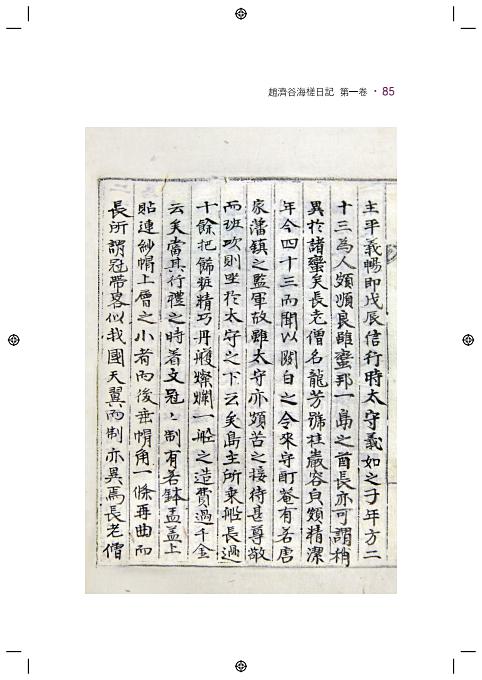 趙濟谷海槎日記 第一卷 · 85
主平義暢即戊辰信行時太守義如之子年方二
十三為人頗順良雖蠻邦一島之酋長亦可謂稍
異於諸蠻矣長老僧名龍芳號桂巖容皃頗精潔
年今四十三而聞以關白之令來守酊菴有若唐
家藩鎮之監軍故雖太守亦頗苦之接待甚尊敬
而班次則坐於太守之下云矣島主所乘船長過
十餘把餙粧精巧丹雘燦爛一船之造費過千金
云矣當其行禮之時着文冠〻制有若鉢盂盖上
貼連紗帽上層之小者而後垂帽角一條再曲而
長所謂冠帶畧似我國天翼而制亦異焉長老僧